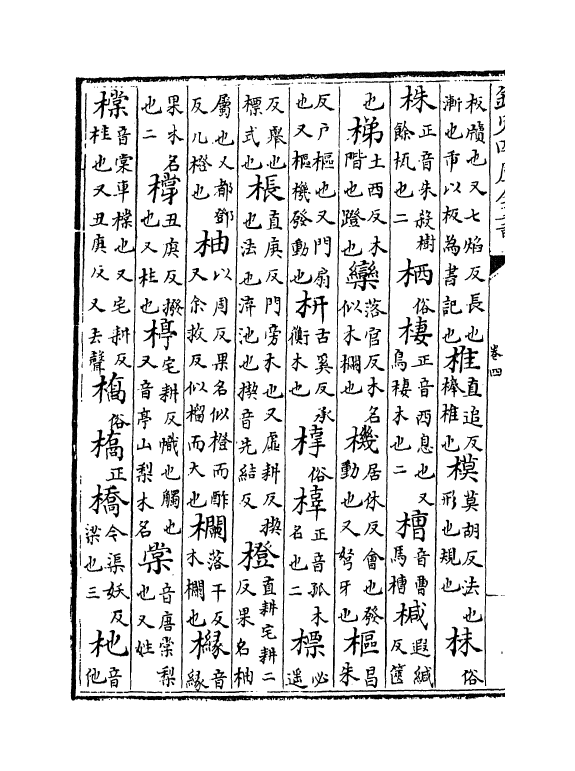 欽定四庫全書
卷四
板牘也又七焰反長也漸也市以板為書記也椎直追反棒椎也模莫胡反法也形也規也枺俗
株正音朱殺樹餘杌也二栖俗棲正音西息也又鳥棲木也二槽音曹馬槽椷遐緘反篋
也梯土西反木階也蹬也欒落官反木名似木欄也機居依反會也發動也又弩牙也樞昌朱
反戶樞也又門扇也又樞機發動也枅古奚反承衡木也俗正音孤木名也二標必遥
反舉也標式也棖直庚反門旁木也又虛耕反揳也法也渧池也揳音先結反橙直耕宅耕二反果名柚
屬也又都鄧反几橙也柚以周反果名似橙而酢又余救反似榴而大也欄落干反木欄也櫞音緣
果木名也二橕丑庚反撥也又柱也楟宅耕反幟也觸也又音亭山梨木名棠音唐棠梨也又姓
橖音棠車橖也又宅耕反柱也又丑庚反又去聲槗俗正橋今渠妖反梁也三杝音他